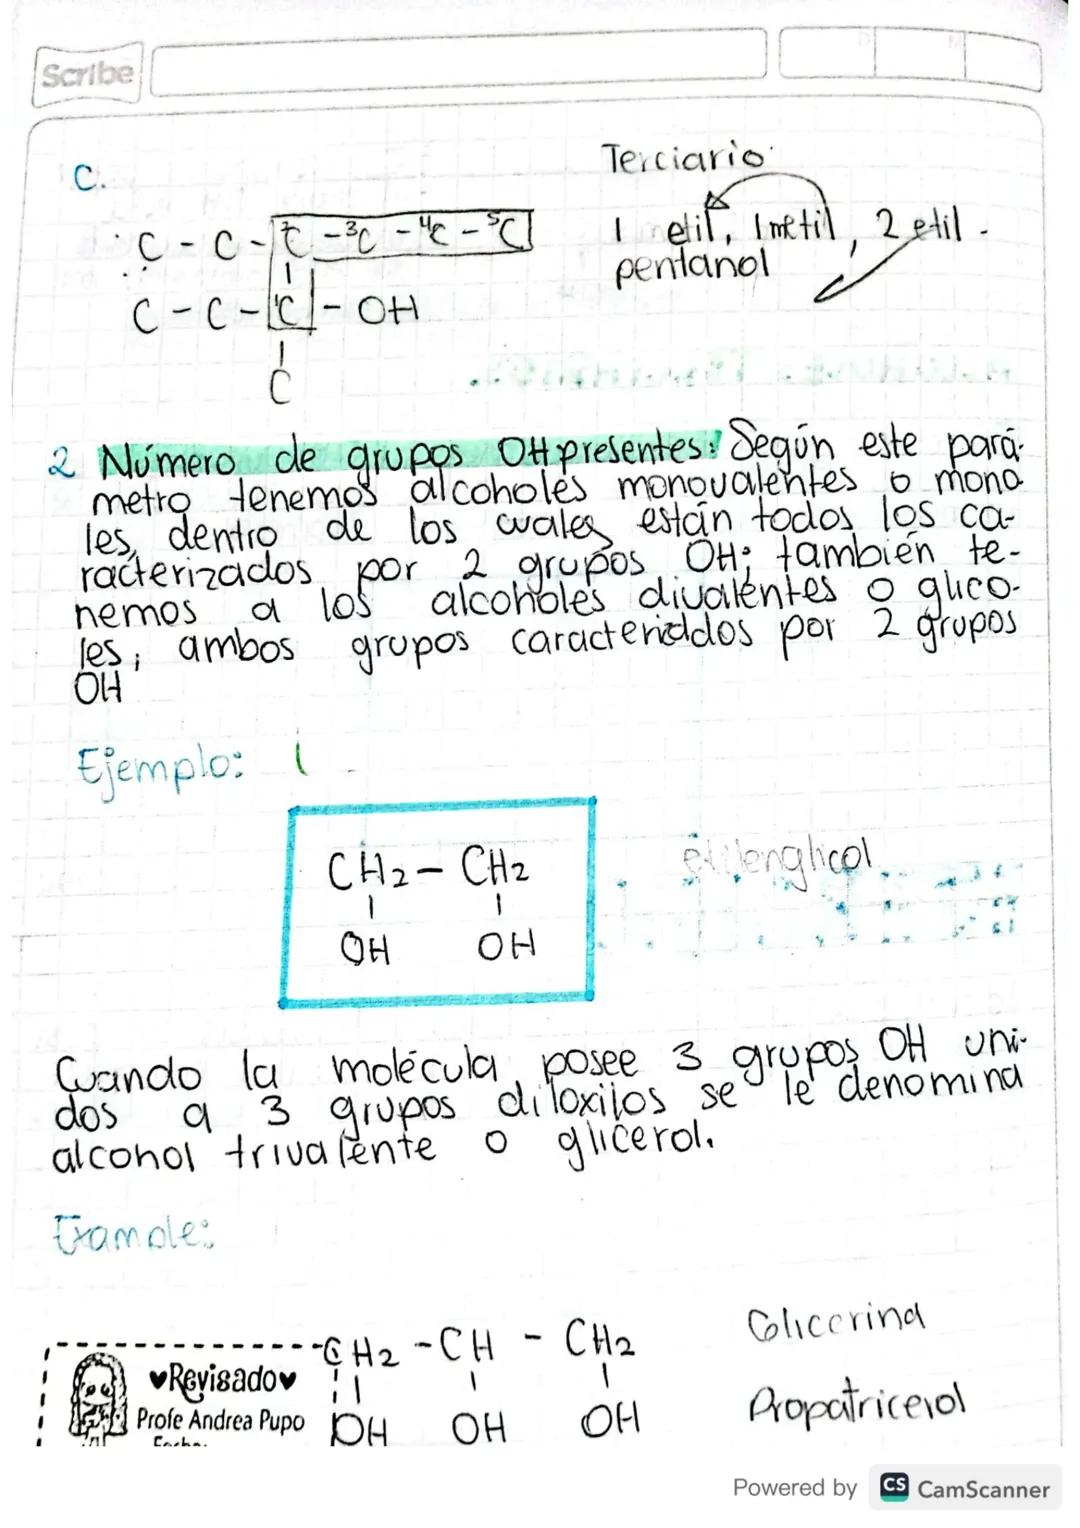 Scribe
C.
Terciario
C - C - ²C - ³C - ⁴C - ⁵C
1 metil, 1 metil, 2 etil -
pentanol
C - C - ¹C - OH
C
2 Número de grupos OH presentes: Según este pará-
metro tenemos alcoholes monovalentes o mono
les, dentro de los cuales están todos los ca-
racterizados por 2 grupos OH; también te-
nemos a los alcoholes divalentes o glico-
les, ambos grupos por 2 grupos
OH
Ejemplo:
CH2 - CH2
etilenglicol
OH OH
Cuando la molécula posee 3 grupos OH uni-
dos a 3 grupos diloxilos se le denomina
alcohol trivalente o glicerol.
Example:
CH2 - CH - CH2
Glicerina
♥Revisado♥
Profe Andrea Pupo
OH OH OH
Propatricerol
Powered by CS CamScanner